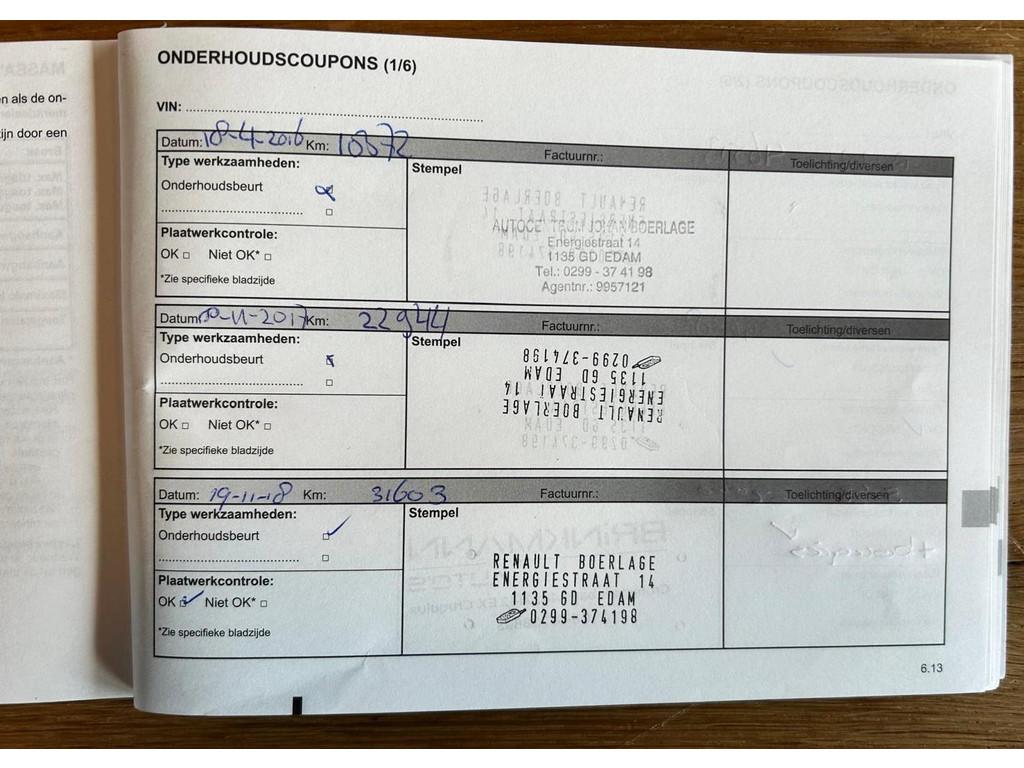 n als de on-
ijn door een
ONDERHOUDSCOUPONS (1/6)
VIN: ................................................
Datum: 18-4-2016 Km: Factuurnr.: Toelichting/diversen
Type werkzaamheden: Stempel
Onderhoudsbeurt
AUTOCE TRUM JOHAN BOERLAGE
Energiestraat 14
1135 GD EDAM
Tel.: 0299 - 37 41 98
Agentnr.: 9957121
Plaatwerkcontrole:
OK □ Niet OK* □
*Zie specifieke bladzijde
Datum: -11-2017 Km: 22944 Factuurnr.: Toelichting/diversen
Type werkzaamheden: Stempel
Onderhoudsbeurt
RENAULT BOERLAGE
ENERGIESTRAAT 14
1135 GD EDAM
0299-374198
Plaatwerkcontrole:
OK □ Niet OK* □
*Zie specifieke bladzijde
Datum: 19-11-18 Km: 31603 Factuurnr.: Toelichting/diversen
Type werkzaamheden: Stempel
Onderhoudsbeurt
RENAULT BOERLAGE
ENERGIESTRAAT 14
1135 GD EDAM
0299-374198
Plaatwerkcontrole:
OK Niet OK* □
*Zie specifieke bladzijde
6.13